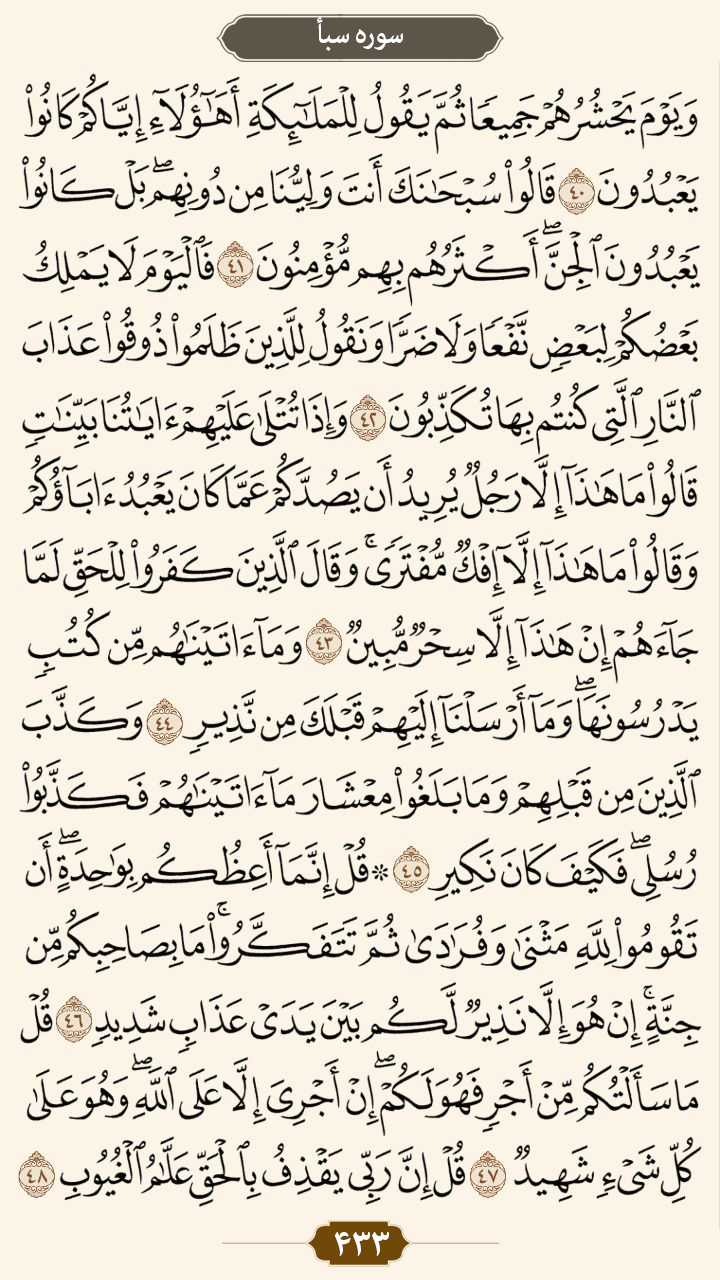 سوره سبأ
وَيَوْمَ يَحْشُرُهُمْ جَمِيعًا ثُمَّ يَقُولُ لِلْمَلَٰٓئِكَةِ أَهَٰٓؤُلَآءِ إِيَّاكُمْ كَانُوا۟
يَعْبُدُونَ ٤٠ قَالُوا۟ سُبْحَٰنَكَ أَنتَ وَلِيُّنَا مِن دُونِهِم ۖ بَلْ كَانُوا۟
يَعْبُدُونَ ٱلْجِنَّ ۖ أَكْثَرُهُم بِهِم مُّؤْمِنُونَ ٤١ فَٱلْيَوْمَ لَا يَمْلِكُ
بَعْضُكُمْ لِبَعْضٍ نَّفْعًا وَلَا ضَرًّا وَنَقُولُ لِلَّذِينَ ظَلَمُوا۟ ذُوقُوا۟ عَذَابَ
ٱلنَّارِ ٱلَّتِى كُنتُم بِهَا تُكَذِّبُونَ ٤٢ وَإِذَا تُتْلَىٰ عَلَيْهِمْ ءَايَٰتُنَا بَيِّنَٰتٍ
قَالُوا۟ مَا هَٰذَآ إِلَّا رَجُلٌ يُرِيدُ أَن يَصُدَّكُمْ عَمَّا كَانَ يَعْبُدُ ءَابَآؤُكُمْ
وَقَالُوا۟ مَا هَٰذَآ إِلَّآ إِفْكٌ مُّفْتَرًى ۚ وَقَالَ ٱلَّذِينَ كَفَرُوا۟ لِلْحَقِّ لَمَّا
جَآءَهُمْ إِنْ هَٰذَآ إِلَّا سِحْرٌ مُّبِينٌ ٤٣ وَمَآ ءَاتَيْنَٰهُم مِّن كُتُبٍ
يَدْرُسُونَهَا ۖ وَمَآ أَرْسَلْنَآ إِلَيْهِمْ قَبْلَكَ مِن نَّذِيرٍ ٤٤ وَكَذَّبَ
ٱلَّذِينَ مِن قَبْلِهِمْ وَمَا بَلَغُوا۟ مِعْشَارَ مَآ ءَاتَيْنَٰهُمْ فَكَذَّبُوا۟
رُسُلِى ۖ فَكَيْفَ كَانَ نَكِيرِ ٤٥ * قُلْ إِنَّمَآ أَعِظُكُم بِوَٰحِدَةٍ ۖ أَن
تَقُومُوا۟ لِلَّهِ مَثْنَىٰ وَفُرَٰدَىٰ ثُمَّ تَتَفَكَّرُوا۟ ۚ مَا بِصَاحِبِكُم مِّن
جِنَّةٍ ۚ إِنْ هُوَ إِلَّا نَذِيرٌ لَّكُم بَيْنَ يَدَىْ عَذَابٍ شَدِيدٍ ٤٦ قُلْ
مَا سَأَلْتُكُم مِّنْ أَجْرٍ فَهُوَ لَكُمْ ۖ إِنْ أَجْرِىَ إِلَّا عَلَى ٱللَّهِ ۖ وَهُوَ عَلَىٰ
كُلِّ شَىْءٍ شَهِيدٌ ٤٧ قُلْ إِنَّ رَبِّى يَقْذِفُ بِٱلْحَقِّ عَلَّٰمُ ٱلْغُيُوبِ ٤٨
۴۳۳